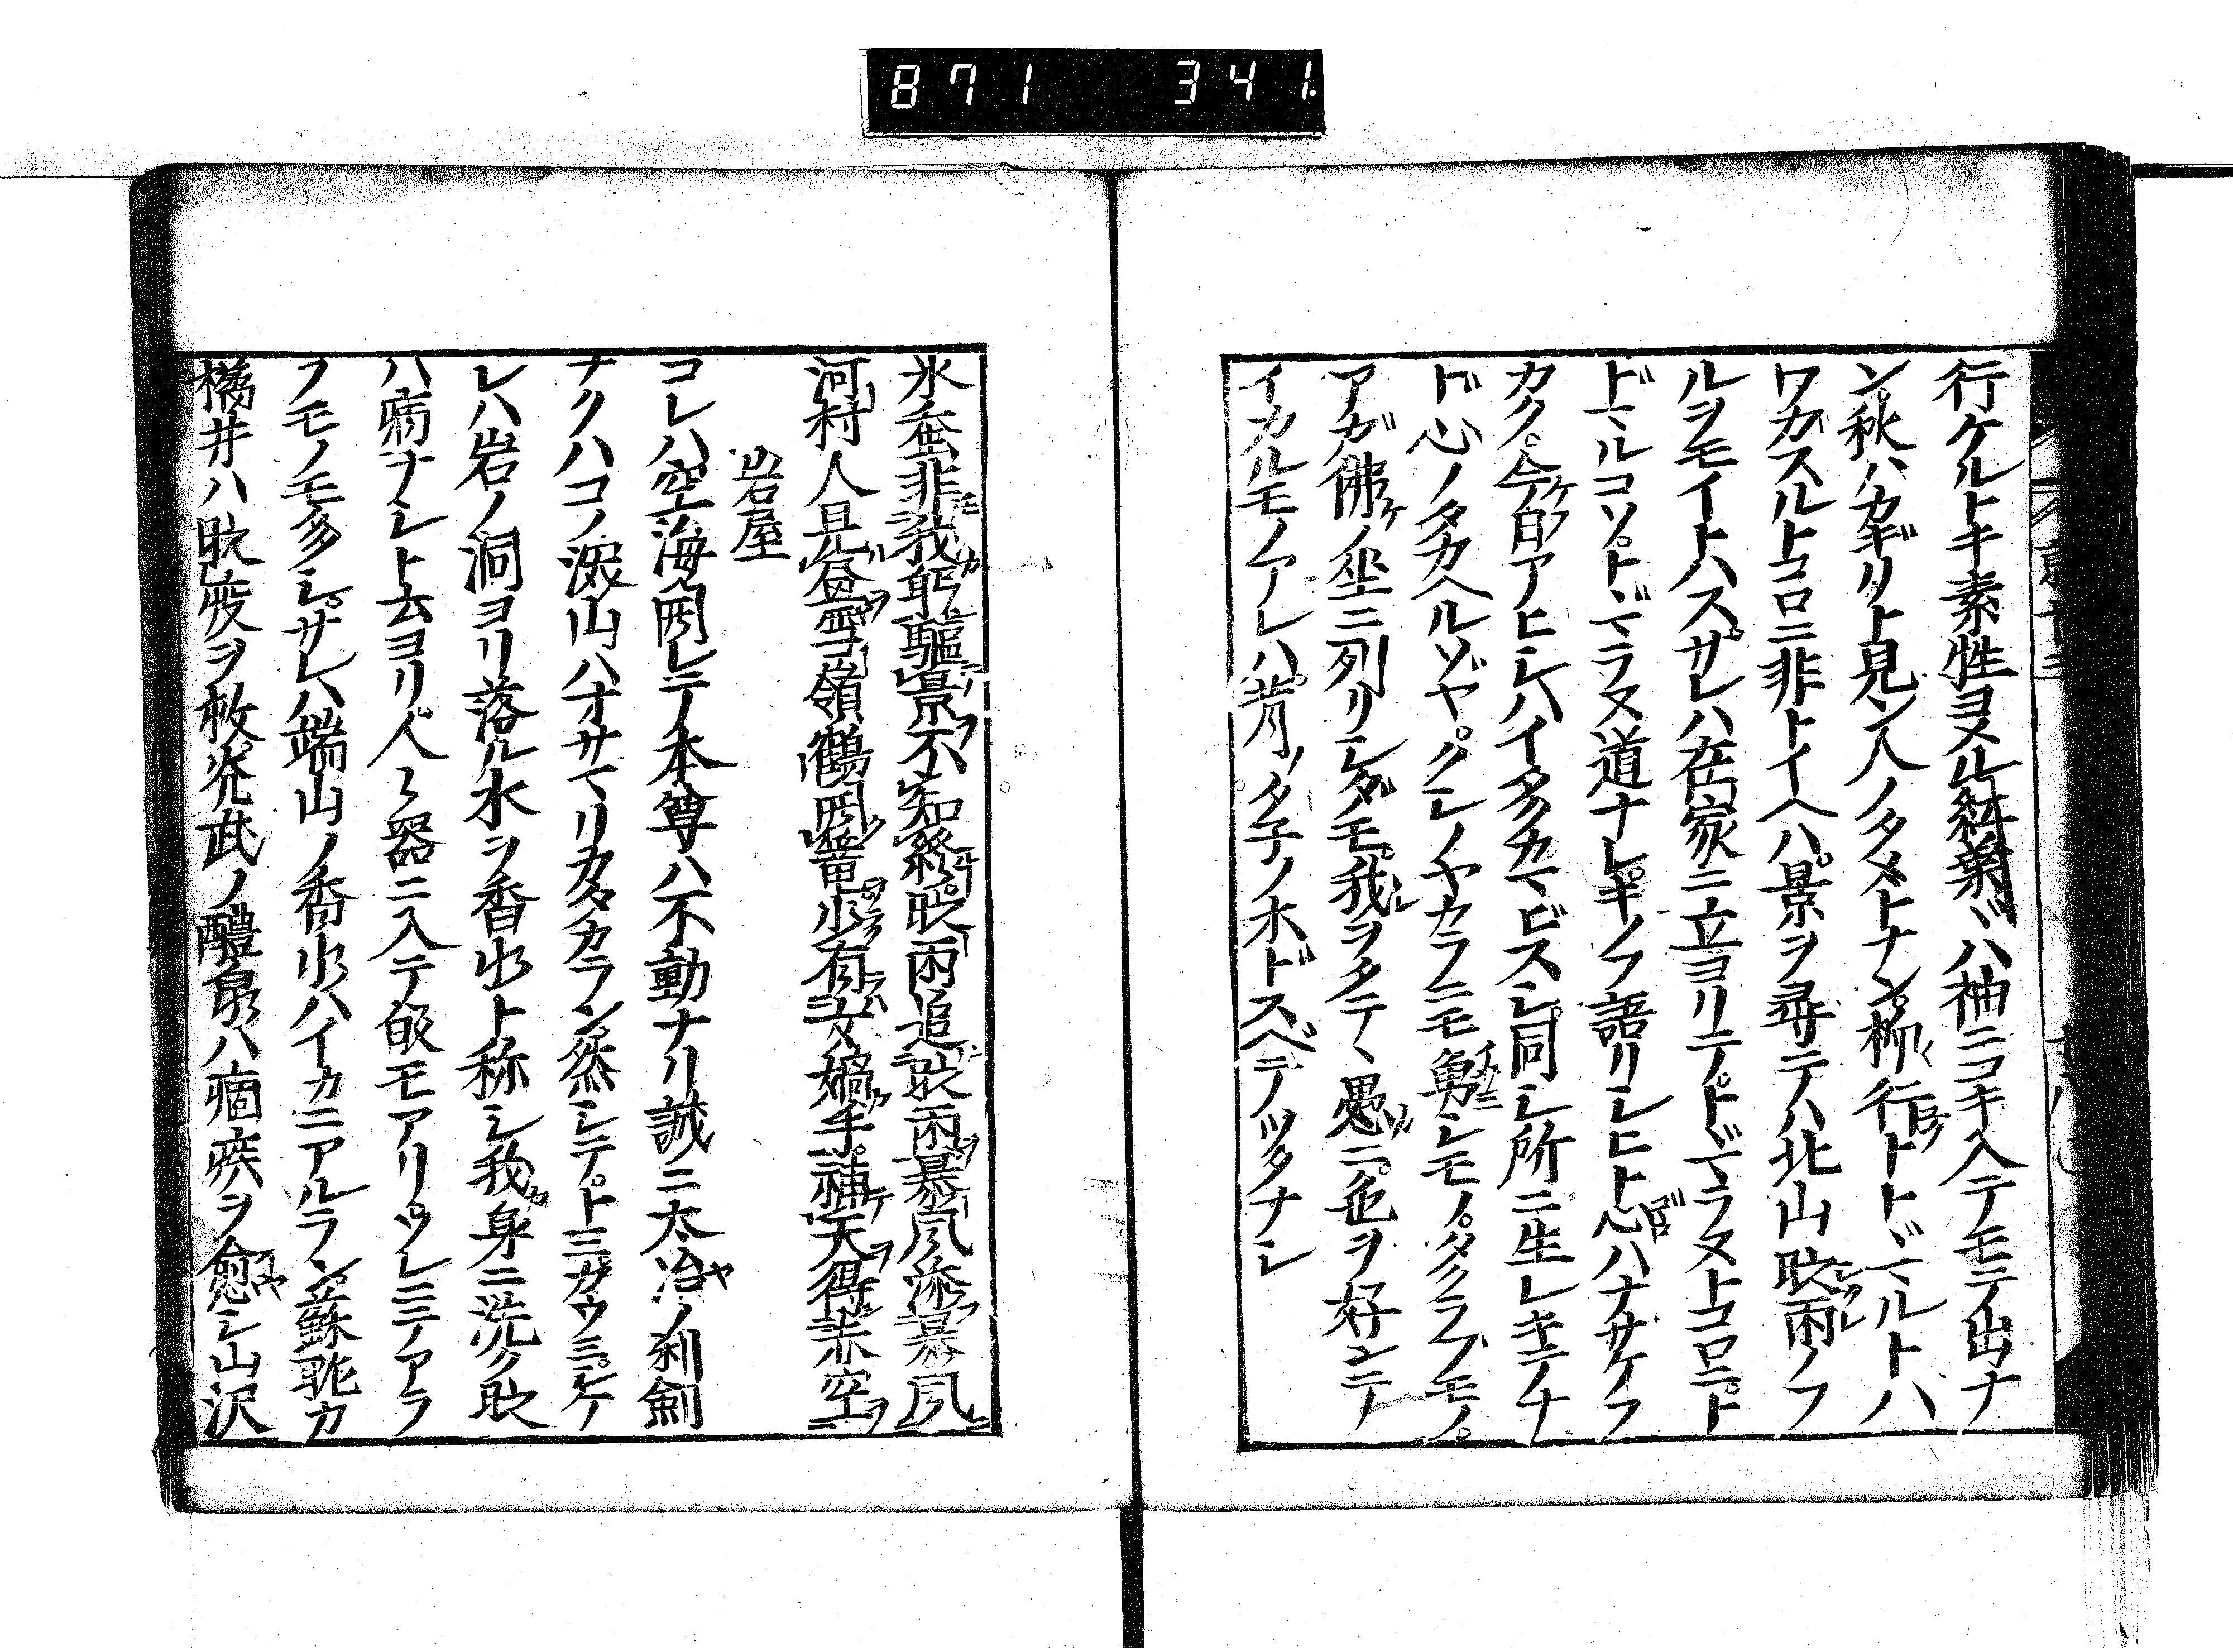 871 341
行ケルトキ素性ヨメル紅葉ハ袖ニコキ入テモテ出ナ
ン秋ハカギリト見ン人ノタメトナン柳行トトヾマルトハ
ワカスルトコロニ非トイヘハ景ヲ尋テハ北山時雨ノフ
ルヲモイトハスサレハ在家ニ立ヨリテトヾマラヌトコロニト
ドマルコソトヾマラヌ道ナレキノフ語リシヒト心ハナサケフ
カク今日アヒシハイタクカマビスシ同シ所ニ生レキテナ
ド心ノタカヘルゾヤクレノヤカラニモ勇シモノタクラブモノ
アガ佛ノ坐ニ列リシダモ我ヲタテヽ愚ニ色ヲ好ンテ
イカルモノアレハ苦ノタ子ノホドスベテツタナシ
氷蚕非我躬驅景不知終時雨追時雨暮风添暮风
河村人見盆雪嶺鶴岡篁少有女媧手補天得恭空
岩屋
コレハ空海角閑レテノ本尊ハ不動ナリ誠ニ太冶ノ利劍
ナクハコノ深山ハオサマリカタカラン然シテト三ガウミシケ
レハ岩ノ洞ヨリ落ル水ヲ香水ト称シ我身ニ洗ク時
ハ病ナシト云ヨリ人々器ニ入テ飯モアリツレニミノアラ
フモノモ多シサレハ端山ノ香水ハイカニアルラン蘇耽カ
橘井ハ時疫ヲ救光武ノ醴泉ハ痼疾ヲ愈シ山沢